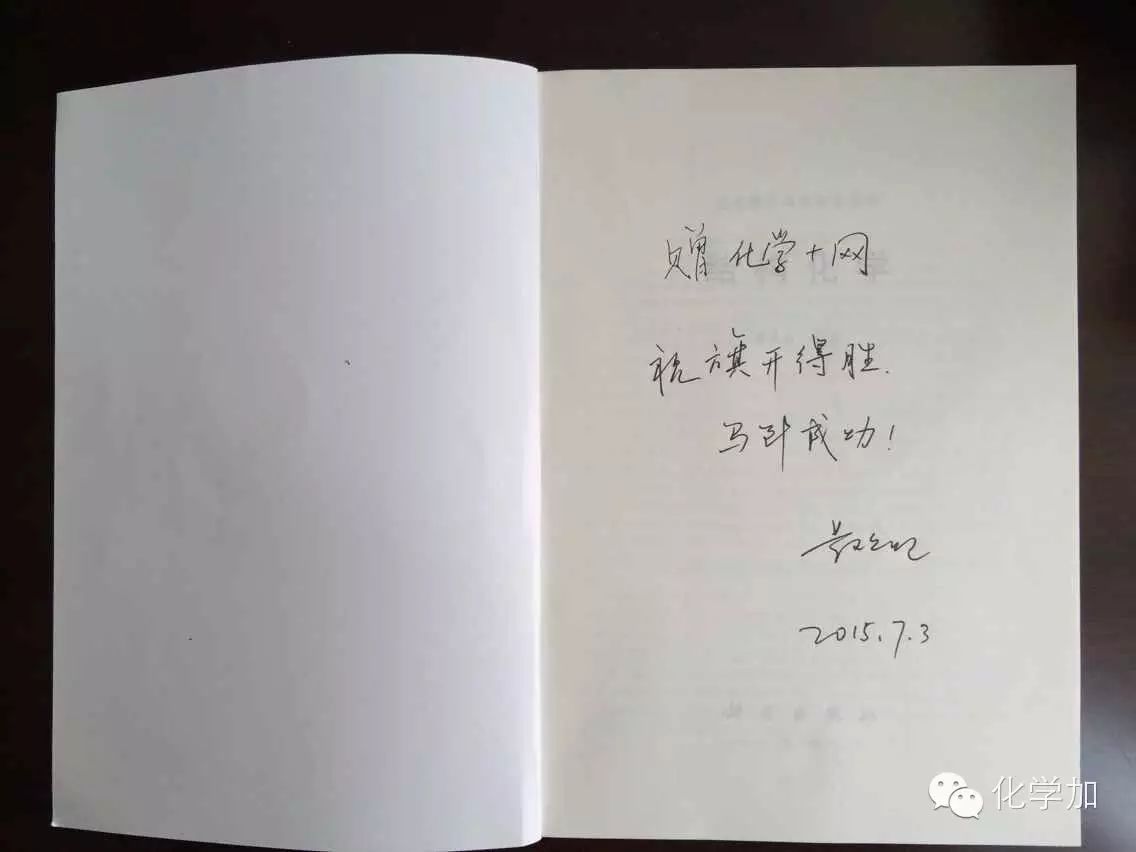 赠化学+网
祝旗开得胜.
马到成功!
2015.7.3
化学加